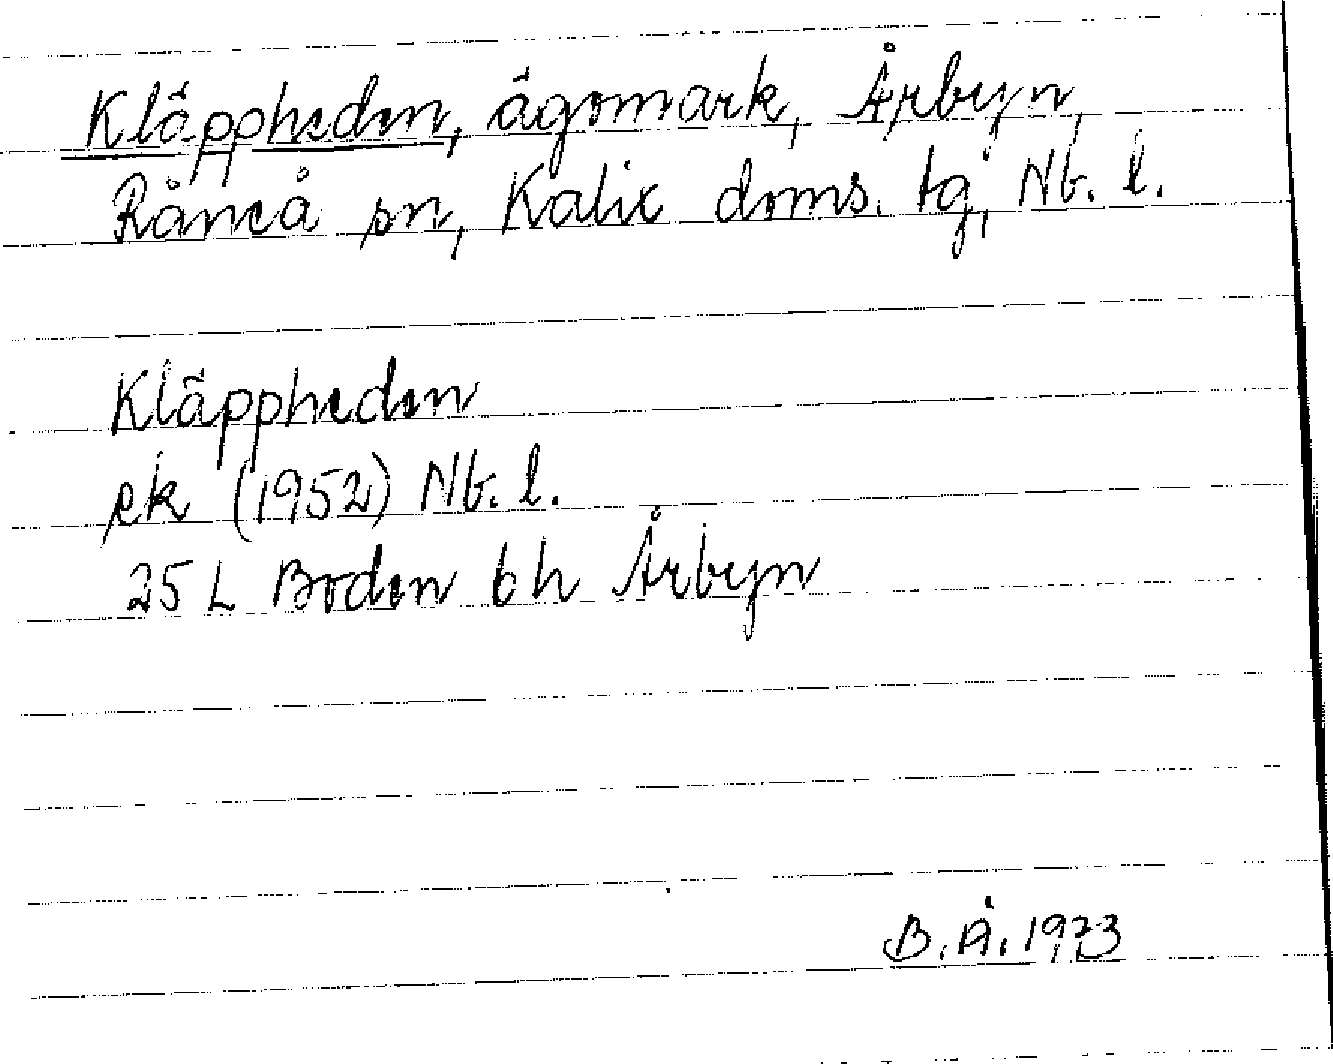 Kläppheden, ägomark, Årbyn,
Råneå sn, Kalix doms. tg, Nb. l.
Kläppheden
ek (1952) Nb. l.
25 L Boden 6h Årbyn
B.Å. 1973